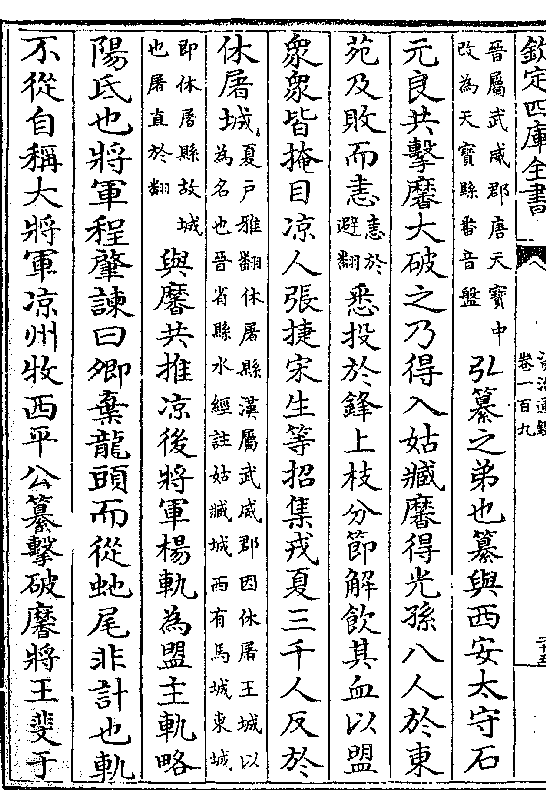 欽定四庫全書
資治通鑑
卷一百九
晉屬武威郡唐天寶中
改為天寶縣番音盤
弘纂之弟也纂與西安太守石
元良共擊黁大破之乃得入姑臧黁得光孫八人於東
苑及敗而恚
恚於
避翻
悉投於鋒上枝分節解飲其血以盟
衆衆皆掩目凉人張捷宋生等招集戎夏三千人反於
休屠城
夏户雅翻休屠縣漢屬武威郡因休屠王城以
為名也晉省縣水經註姑臧城西有馬城東城
即休屠縣故城
也屠直於翻
與黁共推凉後將軍楊軌為盟主軌略
陽氐也將軍程肇諫曰卿棄龍頭而從虵尾非計也軌
不從自稱大將軍凉州牧西平公纂擊破黁將王斐于